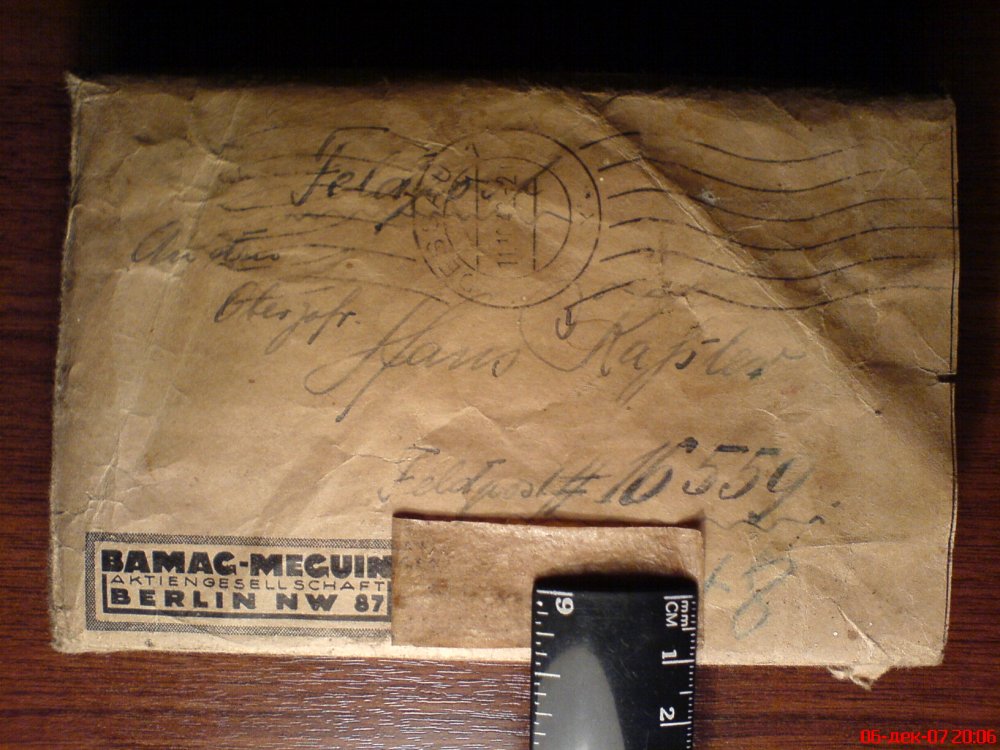 Feldpost
DESSAU
11.11.
An den
Oberjgfr.
Hans Kaßler
Feldpost # 16559
BAMAG-MEGUIN
AKTIENGESELLSCHAFT
BERLIN NW 87
9
mm
CM
1
2
06-дек-07 20:06